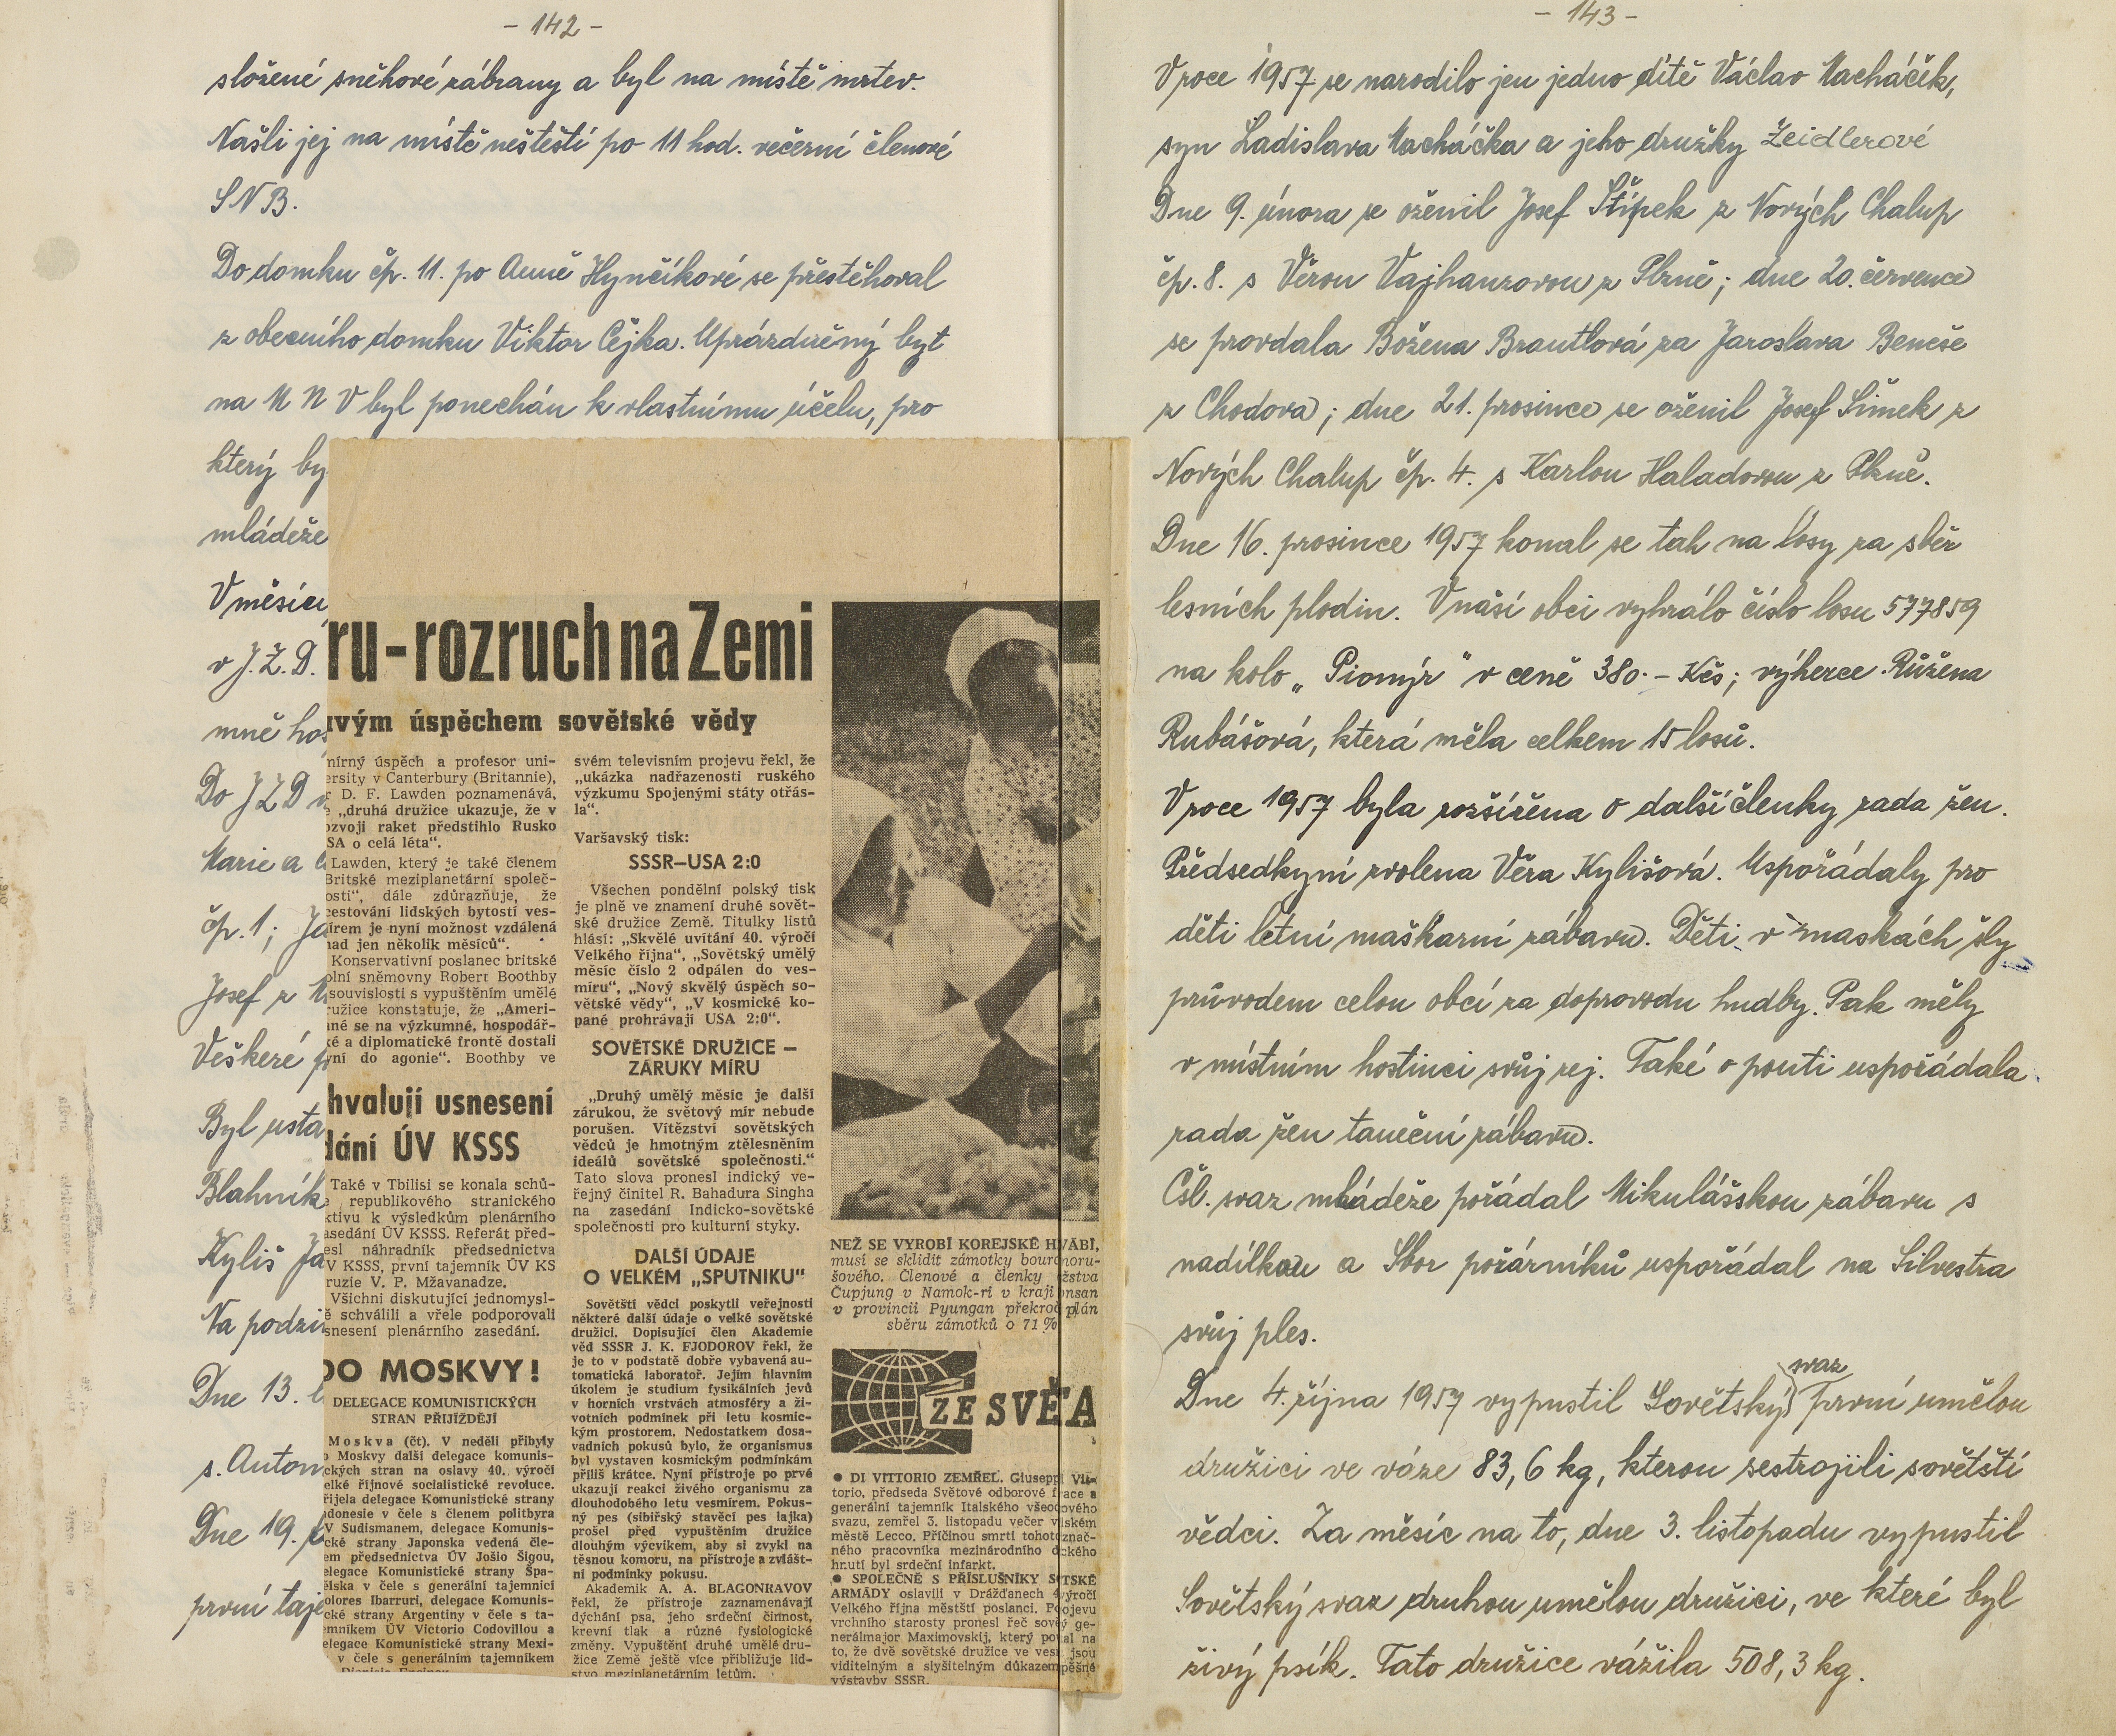 - 142 -
složené sněhové zábrany a byl na místě mrtev.
Našli jej na místě neštěstí po 11 hod. večerní členové
SNB.
Do domku čp. 11. po Anně Hynčíkové se přestěhoval
z obecního domku Viktor Čejka. Uprázdněný byt
na M N V byl ponechán k vlastnímu účelu, pro
který by
mládeže
V měsíci
v J.Z.D.
mně hos
Do JZD
Marie a
čp. 1; Ja
Josef z
Veškeré
Byl usta
Blahník
Kyliš Ja
Na podzi
Dne 13.
s. Anton
Dne 19.
první taje
ru - rozruch na Zemi
avým úspěchem sovětské vědy
mírný úspěch a profesor uni-
ersity v Canterbury (Britannie),
D. F. Lawden poznamenává,
„druhá družice ukazuje, že v
ozvoji raket předstihlo Rusko
SA o celá léta“.
Lawden, který je také členem
Britské meziplanetární společ-
osti“, dále zdůrazňuje, že
cestování lidských bytostí ves-
írem je nyní možnost vzdálená
nad jen několik měsíců“.
Konservativní poslanec britské
olní sněmovny Robert Boothby
souvislosti s vypuštěním umělé
ružice konstatuje, že „Ameri-
né se na výzkumné, hospodář-
ké a diplomatické frontě dostali
yní do agonie“. Boothby ve
hvalují usnesení
dání ÚV KSSS
Také v Tbilisi se konala schů-
republikového stranického
ktivu k výsledkům plenárního
asedání ÚV KSSS. Referát před-
esl náhradník předsednictva
V KSSS, první tajemník ÚV KS
ruzie V. P. Mžavanadze.
Všichni diskutující jednomysl-
ě schválili a vřele podporovali
snesení plenárního zasedání.
DO MOSKVY!
DELEGACE KOMUNISTICKÝCH
STRAN PŘIJÍŽDĚJÍ
Moskva (čt). V neděli přibyly
o Moskvy další delegace komunis-
ckých stran na oslavy 40. výročí
elké říjnové socialistické revoluce.
řijela delegace Komunistické strany
donesie v čele s členem politbyra
V Sudismanem, delegace Komunis-
cké strany Japonska vedená čle-
em předsednictva ÚV Jošio Šigou,
elegace Komunistické strany Špa-
ělska v čele s generální tajemnicí
olores Ibarruri, delegace Komunis-
cké strany Argentiny v čele s ta-
emníkem ÚV Victorio Codovillou a
elegace Komunistické strany Mexi-
v čele s generálním tajemníkem
svém televisním projevu řekl, že
„ukázka nadřazenosti ruského
výzkumu Spojenými státy otřás-
la“.
Varšavský tisk:
SSSR—USA 2:0
Všechen pondělní polský tisk
je plně ve znamení druhé sovět-
ské družice Země. Titulky listů
hlásí: „Skvělé uvítání 40. výročí
Velkého října“, „Sovětský umělý
měsíc číslo 2 odpálen do ves-
míru“, „Nový skvělý úspěch so-
větské vědy“, „V kosmické ko-
pané prohrávají USA 2:0“.
SOVĚTSKÉ DRUŽICE —
ZÁRUKY MÍRU
„Druhý umělý měsíc je další
zárukou, že světový mír nebude
porušen. Vítězství sovětských
vědců je hmotným ztělesněním
ideálů sovětské společnosti.“
Tato slova pronesl indický ve-
řejný činitel R. Bahadura Singha
na zasedání Indicko-sovětské
společnosti pro kulturní styky.
DALŠÍ ÚDAJE
O VELKÉM „SPUTNIKU“
Sovětští vědci poskytli veřejnosti
některé další údaje o velké sovětské
družici. Dopisující člen Akademie
věd SSSR J. K. FJODOROV řekl, že
je to v podstatě dobře vybavená au-
tomatická laboratoř. Jejím hlavním
úkolem je studium fysikálních jevů
v horních vrstvách atmosféry a ži-
votních podmínek při letu kosmic-
kým prostorem. Nedostatkem dosa-
vadních pokusů bylo, že organismus
byl vystaven kosmickým podmínkám
příliš krátce. Nyní přístroje po prvé
ukazují reakci živého organismu za
dlouhodobého letu vesmírem. Pokus-
ný pes (sibiřský stavěcí pes lajka)
prošel před vypuštěním družice
dlouhým výcvikem, aby si zvykl na
těsnou komoru, na přístroje a zvlášt-
ní podmínky pokusu.
Akademik A. A. BLAGONRAVOV
řekl, že přístroje zaznamenávají
dýchání psa, jeho srdeční činnost,
krevní tlak a různé fysiologické
změny. Vypuštění druhé umělé dru-
žice Země ještě více přibližuje lid-
stvo meziplanetárním letům.
NEŽ SE VYROBÍ KOREJSKÉ HVÁBÍ,
musí se sklidit zámotky bource moru-
šového. Členové a členky žstva
Čupjung v Namok-ri v kraji onsan
v provincii Pyungan překroč plán
sběru zámotků o 71 %
ZE SVĚTA
● DI VITTORIO ZEMŘEL. Giuseppi Vit-
torio, předseda Světové odborové f ace a
generální tajemník Italského všeod ového
svazu, zemřel 3. listopadu večer v lském
městě Lecco. Příčinou smrti tohoto znač-
ného pracovníka mezinárodního d ckého
hnutí byl srdeční infarkt.
● SPOLEČNĚ S PŘÍSLUŠNÍKY S TSKÉ
ARMÁDY oslavili v Drážďanech 4 výročí
Velkého října městští poslanci. P ojevu
vrchního starosty pronesl řeč sov ý ge-
nerálmajor Maximovskij, který po al na
to, že dvě sovětské družice ve vesm jsou
viditelným a slyšitelným důkazem pěšné
výstavby SSSR.
- 143 -
V roce 1957 se narodilo jen jedno dítě Václav Macháček,
syn Ladislava Macháčka a jeho družky Zeidlerové
Dne 9. února se oženil Josef Štípek z Nových Chalup
čp. 8. s Věrou Vajhanzovou z Plzně; dne 20. července
se provdala Božena Brautlová za Jaroslava Beneše
z Chodova; dne 21. prosince se oženil Josef Šimek z
Nových Chalup čp. 4. s Karlou Haladovou z Plzně.
Dne 16. prosince 1957 konal se tah na losy za sběr
lesních plodin. V naší obci vyhrálo číslo losu 577859
na kolo „Pionýr“ v ceně 380.- Kčs; výherce Růžena
Rubášová, která měla celkem 15 losů.
V roce 1957 byla rozšířena o další členky rada žen.
Předsedkyní zvolena Věra Kylišová. Uspořádaly pro
děti letní maškarní zábavu. Děti v maskách šly
průvodem celou obcí za doprovodu hudby. Pak měly
v místním hostinci svůj rej. Také o pouti uspořádala
rada žen taneční zábavu.
Čsl. svaz mládeže pořádal Mikulášskou zábavu s
nadílkou a Sbor požárníků uspořádal na Silvestra
svůj ples.
Dne 4. října 1957 vypustil Sovětský svaz první umělou
družici ve váze 83,6 kg, kterou sestrojili sovětští
vědci. Za měsíc na to, dne 3. listopadu vypustil
Sovětský svaz druhou umělou družici, ve které byl
živý psík. Tato družice vážila 508,3 kg.